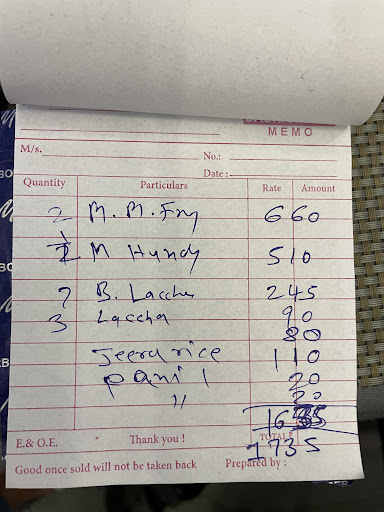 MEMO
M/s.
No.:
Date :
Quantity Particulars Rate Amount
2 M. M. Fry 660
1/2 M Hundy 510
7 B. Laccha 245
3 Laccha 90
80
Jeera rice 110
pani 1 20
" 20
1635
E.& O.E. Thank you ! TOTAL
1735
Good once sold will not be taken back Prepared by :